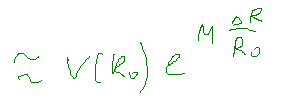 ≈ V(R₀) e^{M ΔR/R₀}